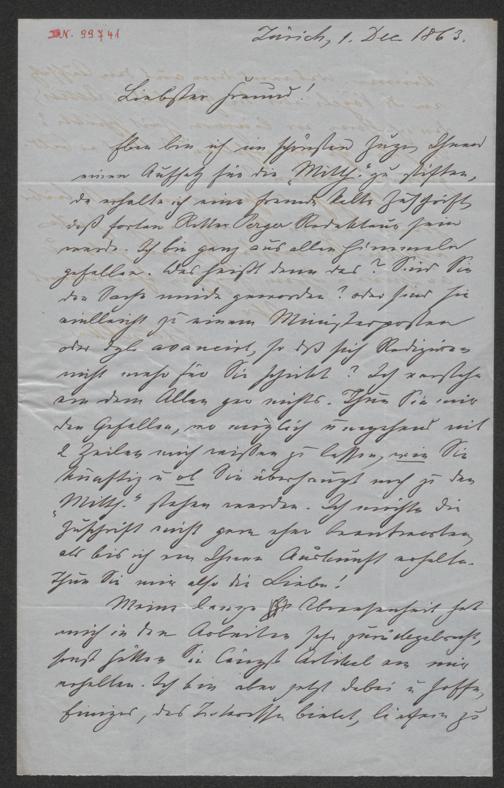 I.N. 99741
Zürich, 1. Dec 1863.
Liebster Freund!
Eben bin ich im schönsten Zuge, Ihnen
einen Aufsatz für die „Mitth." zu stiften,
da erhalte ich eine fremde kalte Zuschrift,
daß fortan Ritter Perger Redakteur sein
werde. Ich bin ganz aus allen Himmeln
gefallen. Was heißt denn das? Sind Sie
der Sache müde geworden? oder sind Sie
vielleicht zu einem Ministerposten
oder dgl. avancirt, so daß sich Redigiren
nicht mehr für Sie schickt? Ich verstehe
von dem Allen gar nichts. Thun Sie mir
den Gefallen, wo möglich umgehend mit
2 Zeilen mich wissen zu lassen, wie Sie
künftig u ob Sie überhaupt noch zu den
„Mitth." stehen werden. Ich möchte die
Zuschrift nicht gern eher beantworten,
als bis ich von Ihnen Auskunft erhalte.
Thun Sie mir also die Liebe!
Meine lange Abwesenheit hat
mich in den Arbeiten sehr zurückgebracht,
sonst hätten Sie längst Artikel von mir
erhalten. Ich bin aber jetzt dabei u hoffe,
Einiges, das Interesse bietet, liefern zu